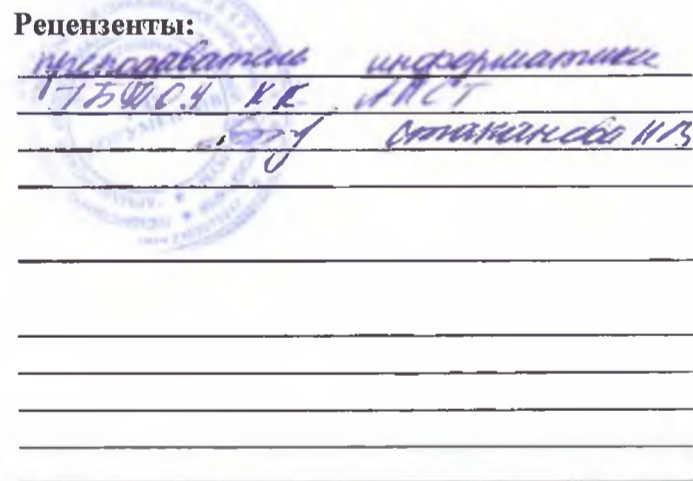 Рецензенты:
преподаватель информатики
ГБПОУ КК АПСТ
Стаканова Н В